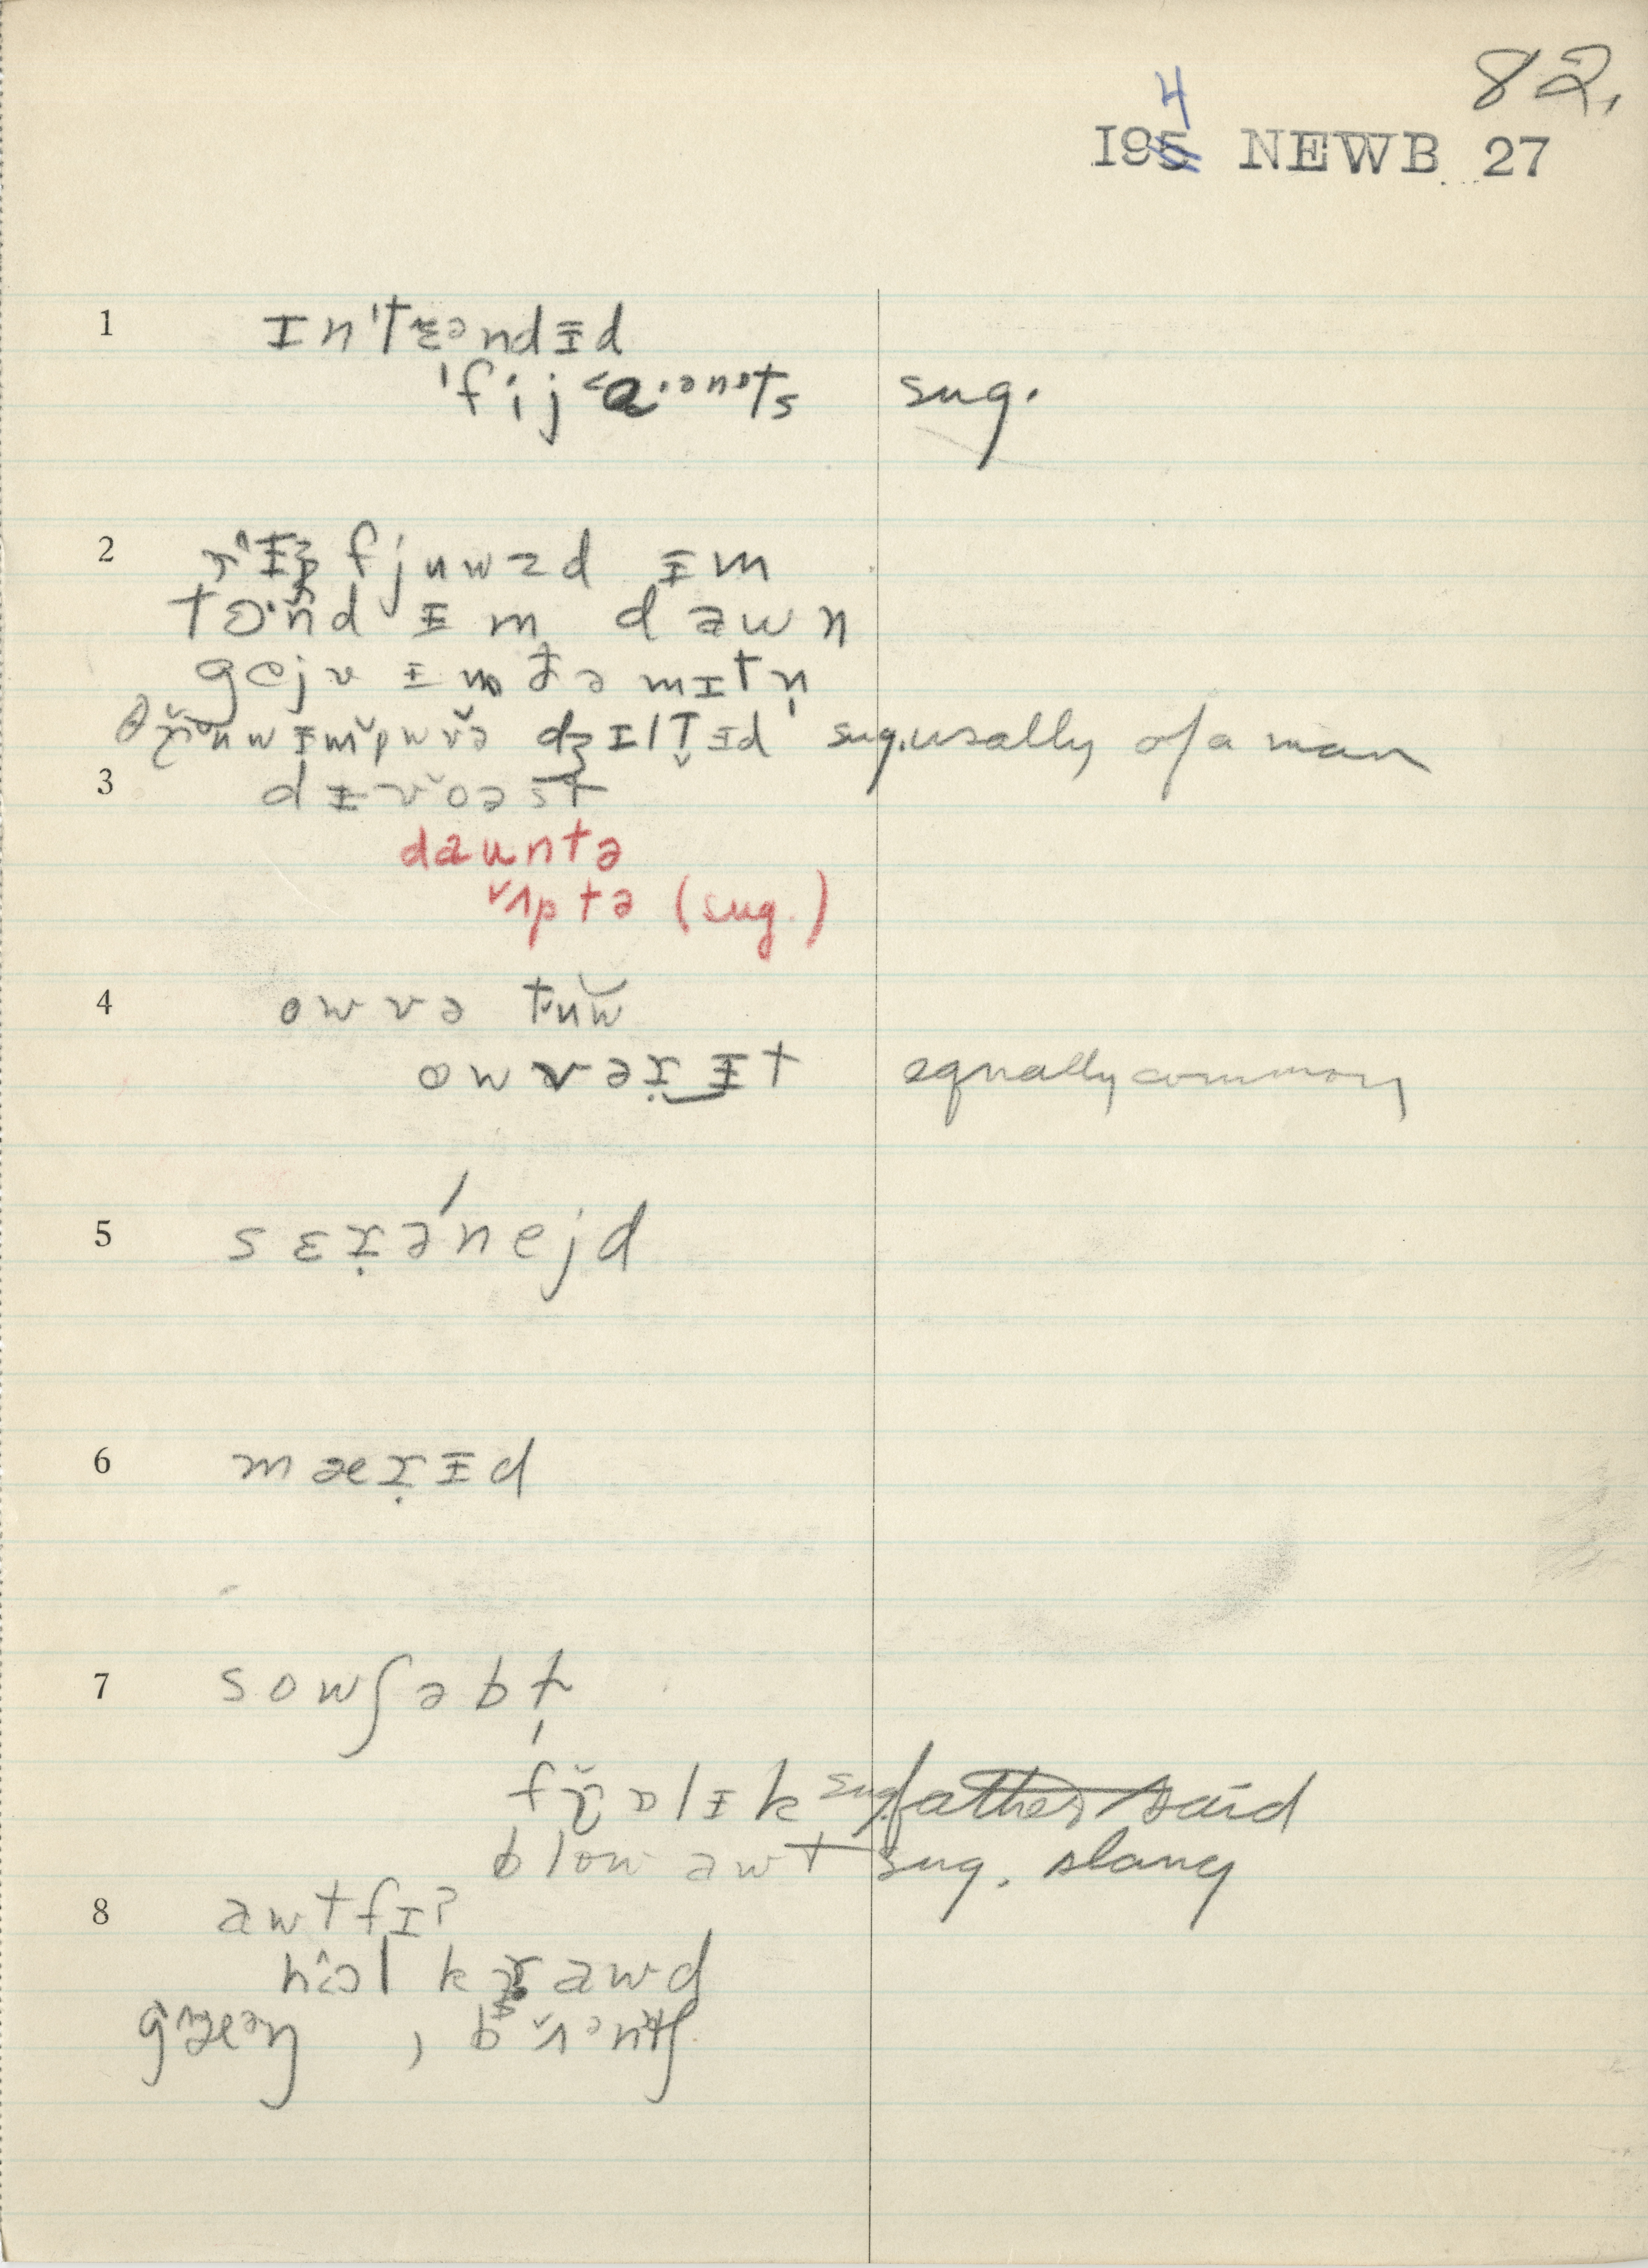 82.
I954 NEWB 27
1 ɪn'tɛəndɨd
'fijɑənts sug.
2 rɨfjuwzd ɨm
tɔnd ɨm dawn
gejv ɨm ðə mɪtn̩
θruw ɨm owvə dʒɪltɨd sug. usally of a man
3 dɨvoəst
daʊntə
ʌptə (sug.)
4 owvə tuw
owvər ɨt equally common
5 sɛrə'nejd
6 mærɨd
7 sowʃəbl̩
frɒlɨk sug. father said
blow awt sug. slang
8 awtfɪt
hol krawd
gæəŋ , bʌəntʃ